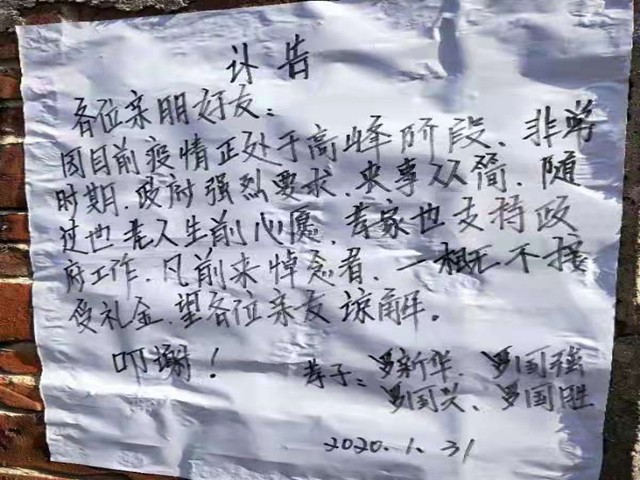 讣告
各位亲朋好友:
因目前疫情正处于高峰阶段、非常
时期.政府强烈要求.丧事从简.随
过也老人生前心愿.孝家也支持政
府工作.凡前来悼念者.一概不接
受礼金.望各位亲友谅解。
叩谢!
孝子:罗新华、罗国强
罗国兴、罗国胜
2020.1.31